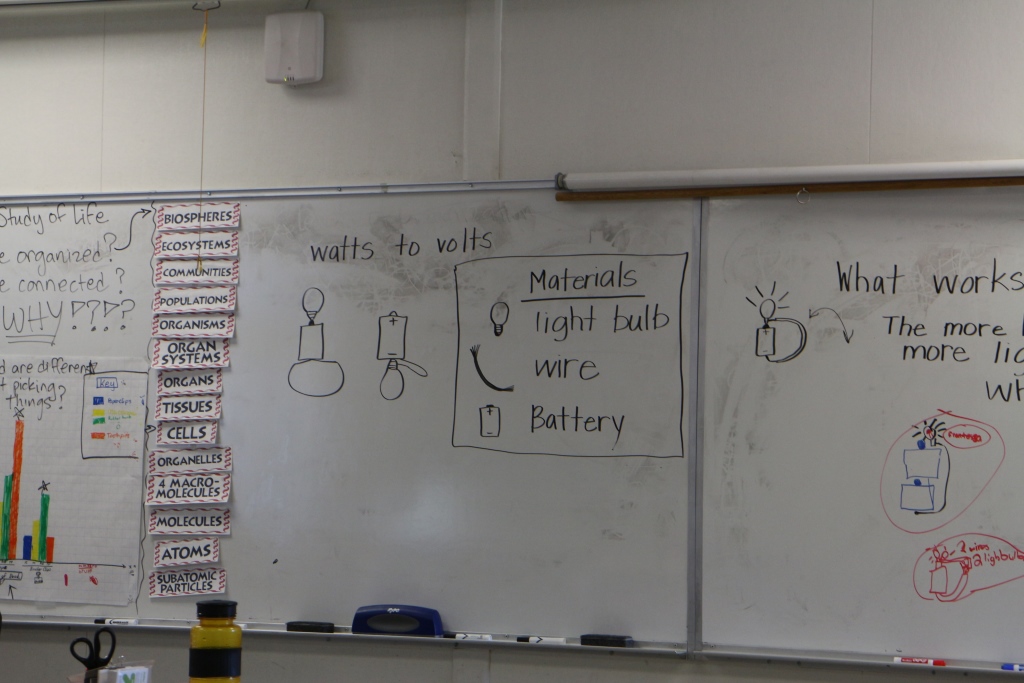 Study of Life
e organized?
e connected?
WHY????
d are different
t picking
things?
Key
BIOSPHERES
ECOSYSTEMS
COMMUNITIES
POPULATIONS
ORGANISMS
ORGAN
SYSTEMS
ORGANS
TISSUES
CELLS
ORGANELLES
4 MACRO-
MOLECULES
MOLECULES
ATOMS
SUBATOMIC
PARTICLES
watts to volts
Materials
light bulb
wire
Battery
What works
The more
more lig
wh
2 wires
2 lightbulb